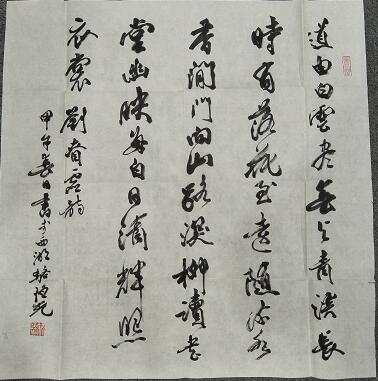 道由白雲尽春与青溪長
時有落花至遠隨流水
香閒門向山路深柳讀書
堂幽映每白日清輝照
衣裳 劉昚虛詩
甲午日書於西湖